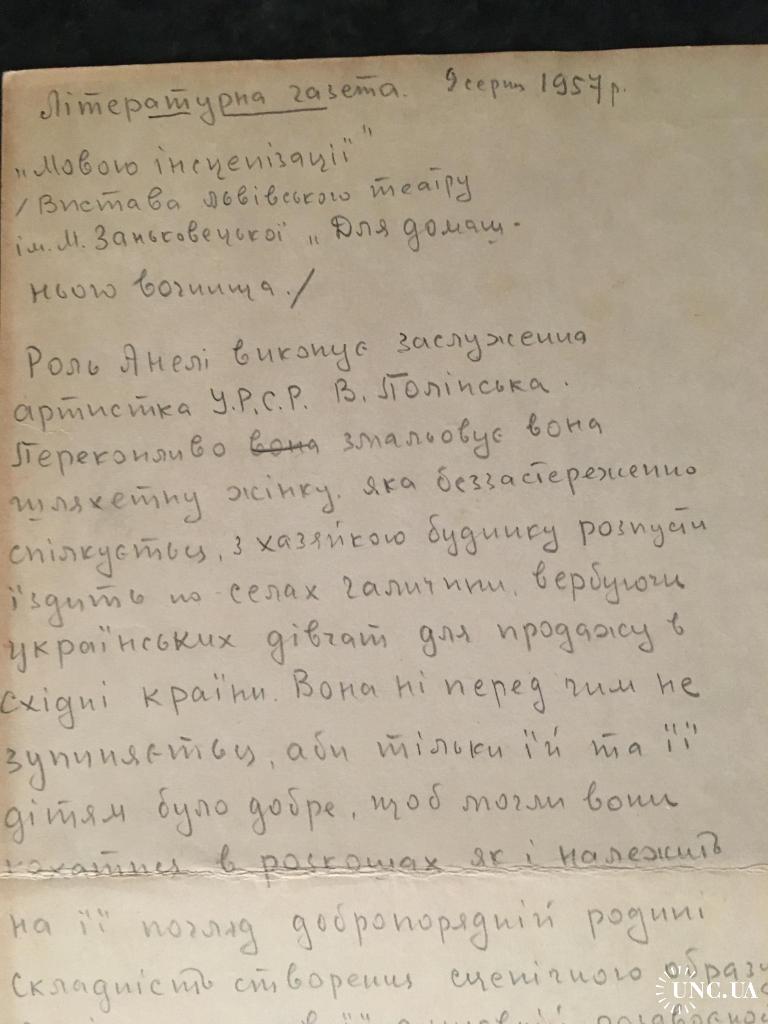 Літературна газета. 9 серпн 1957 р.
„Мовою інсценізації"
/Вистава львівського театру
ім. М. Заньковецької „Для домаш-
нього вогнища./
Роль Анелі виконує заслуженна
артистка У.Р.С.Р. В. Полінська.
Переконливо вона змальовує вона
шляхетну жінку. яка беззастереженно
спілкується, з хазяйкою будинку розпусти
їздить по селах галичини, вербуючи
українських дівчат для продажу в
східні країни. Вона ні перед чим не
зупиняється, аби тільки їй та її
дітям було добре, щоб могли вони
кохатися в розкошах як і належить
на її погляд добропорядній родині
складність створення сценічного образу
в її
UNC.UA